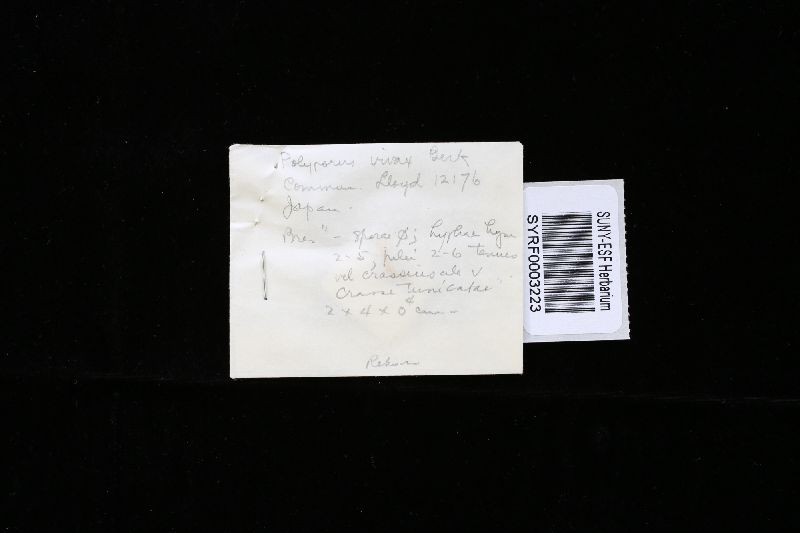 Polyporus vivax Berk
Commun. Lloyd 12176
Japan.
Bres "- sporae ø; hyphae hym
2-5, pilei 2-6 tenues
vel crassiuscule v
crasse tunicatae"
2 x 4 x 0 cm -
SUNY-ESF Herbarium
SYRF0003223